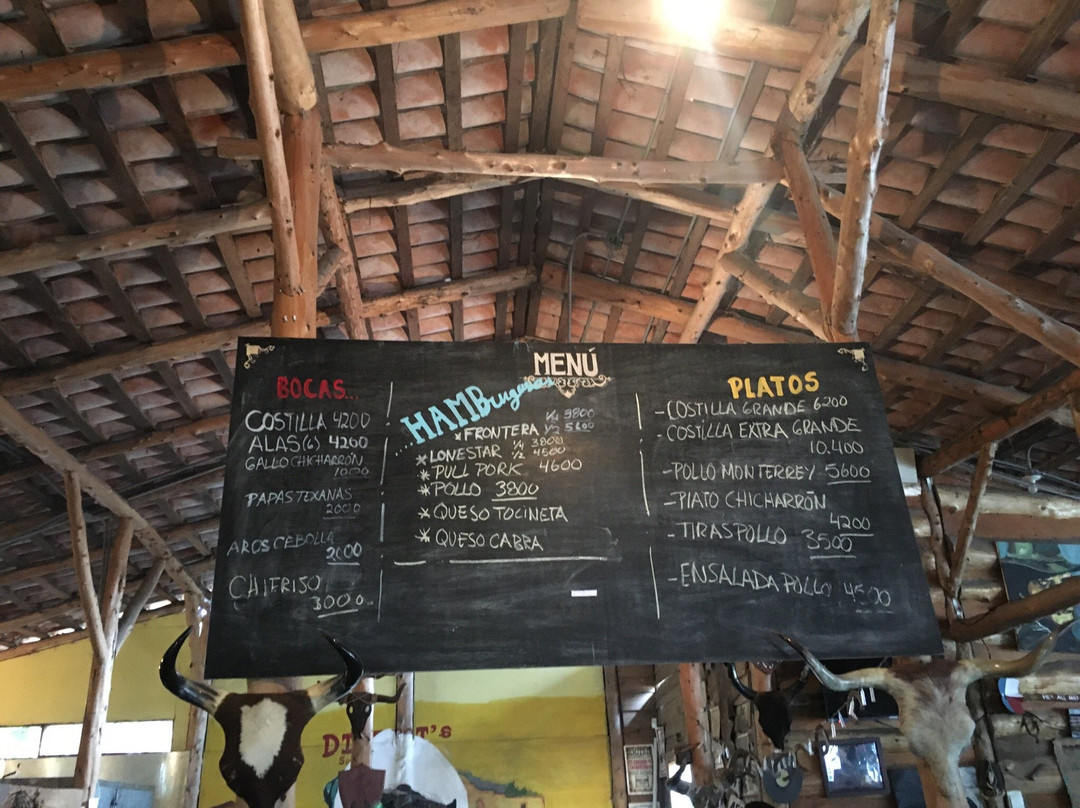 MENÚ
BOCAS...
COSTILLA 4200
ALAS(6) 4200
GALLO CHICHARRÓN
1000
PAPAS TEXANAS
2000
AROS CEBOLLA
2000
CHIFRIJO
3000
HAMBurguesas
*FRONTERA 1/4 3800
1/2 5600
*LONESTAR 1/4 3800
1/2 4500
*PULL PORK 4600
*POLLO 3800
*QUESO TOCINETA
*QUESO CABRA
PLATOS
-COSTILLA GRANDE 6200
-COSTILLA EXTRA GRANDE
10.400
-POLLO MONTERREY 5600
-PLATO CHICHARRÓN
4200
-TIRAS POLLO 3500
-ENSALADA POLLO 4500